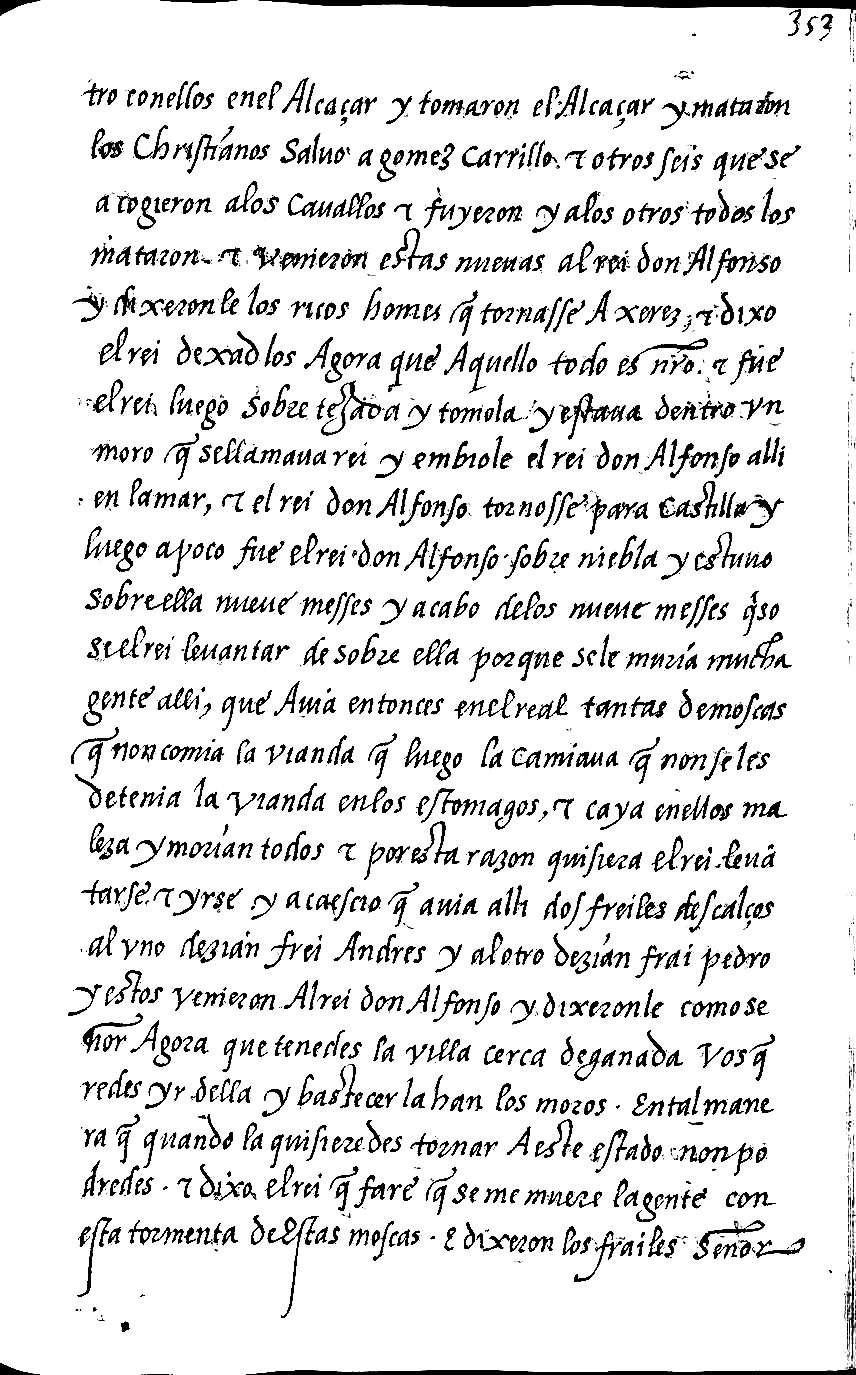 353
tro conellos enel Alcaçar y tomaron el Alcaçar y mataron
los Christianos Saluo a gomez Carrillo. τ otros seis que se
acogieron alos Cauallos τ fuyeron y alos otros todos los
mataron. τ Venieron estas nueuas al rei don Alfonso
y dixeronle los ricos homes q̃ tornasse A xerez, τ dixo
el rei dexadlos Agora que Aquello todo es nr̃o. τ fue
el rei luego Sobre tejada y tomola y estaua dentro vn
moro q̃ sellamaua rei y embiole el rei don Alfonso alli
en lamar, τ el rei don Alfonso tornosse para Castilla y
luego apoco fue elrei don Alfonso sobre niebla y estuuo
Sobreella nueue messes y acabo delos nueue messes q̃so
se elrei leuantar de sobre ella porque sele muria mucha
gente alli, que Auia entonces enelreal tantas demoscas
q̃ non comia la vianda q̃ luego la Camiaua q̃ non seles
detenia la vianda enlos estomagos, τ caya enellos ma
leza y morian todos τ poresta razon quisiera elrei leuã
tarse τ yrse y acaescio q̃ auia alli dos freiles descalços
al vno dezian frei Andres y alotro dezian frai pedro
y estos Venieron Alrei don Alfonso y dixeronle como se
ñor Agora que tenedes la villa cerca deganada Vos q̃
redes yr della y bastecer la han los moros. Ental mane
ra q̃ quando la quisieredes tornar Aeste estado non po
dredes. τ dixo elrei q̃ fare q̃ se me muere lagente con
esta tormenta deEstas moscas. E dixeron los frailes Señor